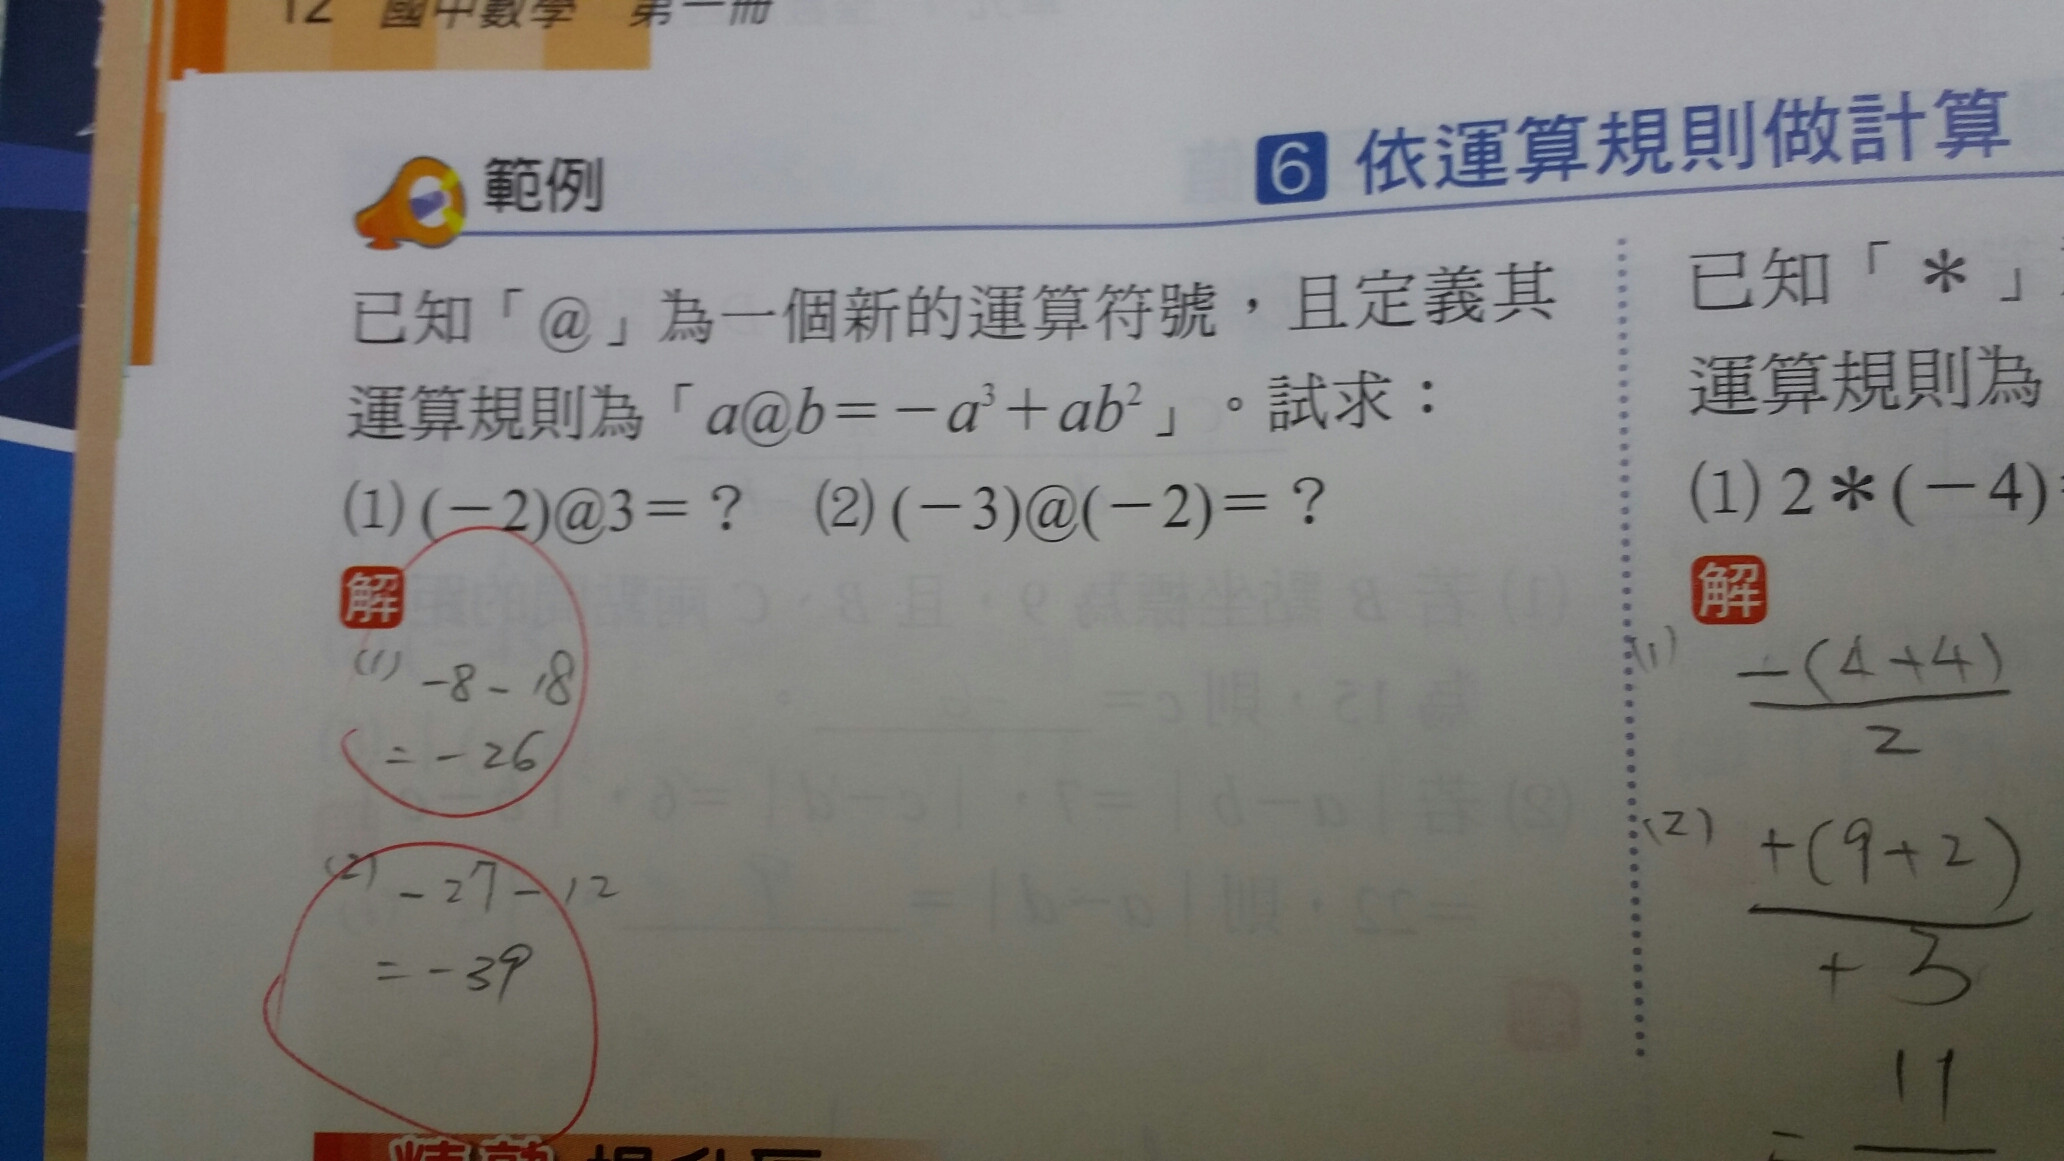 12 國中數學 第一冊
範例
6 依運算規則做計算
已知「@」為一個新的運算符號，且定義其
運算規則為「a@b=-a³+ab²」。試求：
(1)(-2)@3=？ (2)(-3)@(-2)=？
解
(1) -8-18
=-26
(2) -27-12
=-39
已知「＊」
運算規則為
(1) 2＊(-4)
解
(1) -(4+4)
2
(2) +(9+2)
+3
= 11